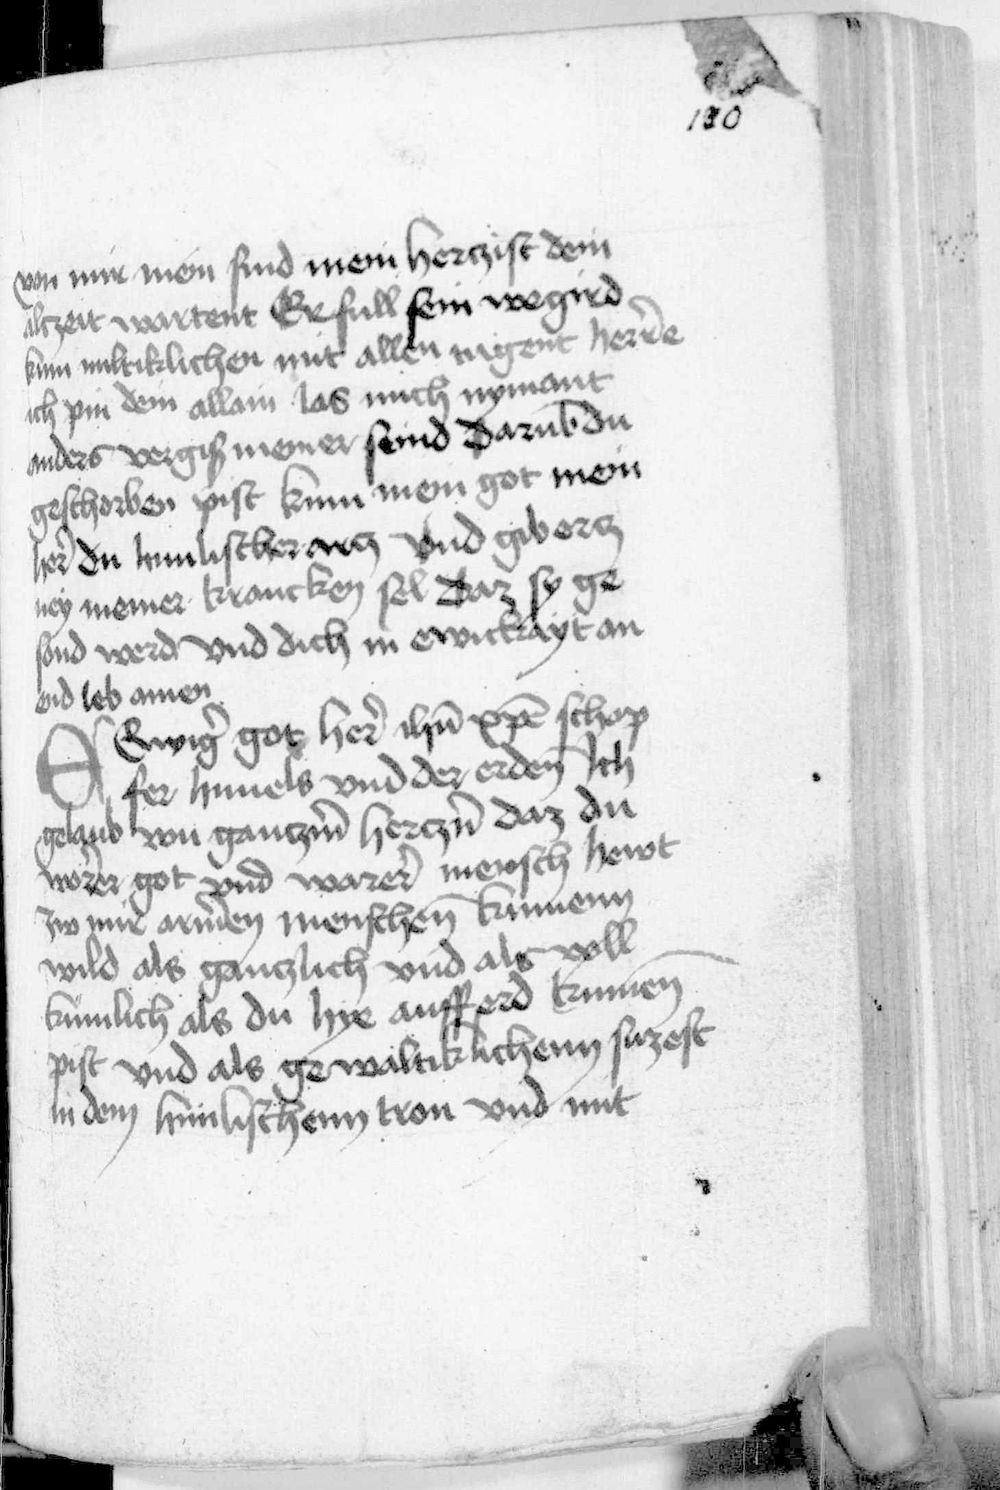 130
von mir mein sind mein hercz ist dein
alczeit wartent Erfull sein wegird
kum miltiklichen mit allen tugent herre
ich pin dein allain las mich nymant
anders vergiß meiner seind Darub̄ du
geschorben pist kum mein got mein
her̃ du himlischer arcz vnd gib ercz
ney meiner krancken sel Daz sy ge
sond werd vnd dich in ewickayt an
end lob amen
O Ewig̃ got her̃ ihũ xp̄e schop
fer himels vnd der erden̄ Ich
gelaub von gancz̃m hercz̃n daz du
worer got vnd warer̃ mensch hewt
zw mir armen menschen̄ kumenn
wild als ganczlich vnd als voll
kumlich als du hye auff erd kumen̄
pist vnd als gewaltiklichenn siczest
in dem himlischenn tron vnd mit